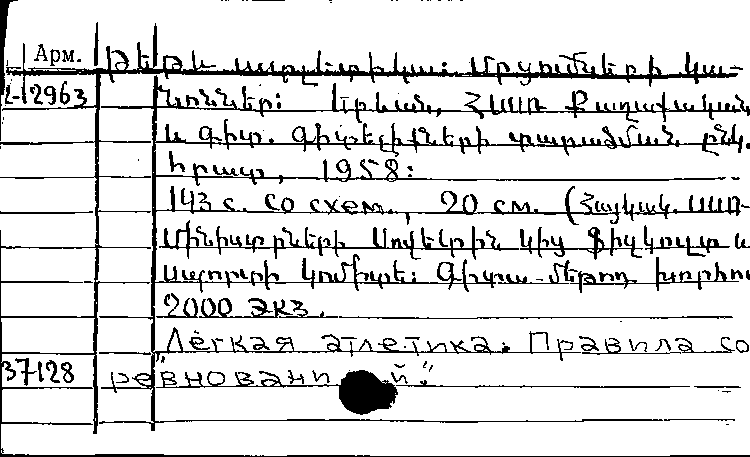 Арм. Թեթև ատլետիկա: Մրցումների կա-
2-12963 նոններ: Երևան, ՀՍՍՌ Քաղաքական
և գիտ. գիտելիքների տարածման ընկ.
հրատ, 1958:
143 с. со схем., 20 см. (Հայկակ. ՍՍՌ
Մինիստրների Սովետին կից ֆիզկուլտ և
սպորտի կոմիտե: Գիտա-մեթոդ խորհու
2000 экз.
"Лёгкая атлетика. Правила со
37128 ревновани й."